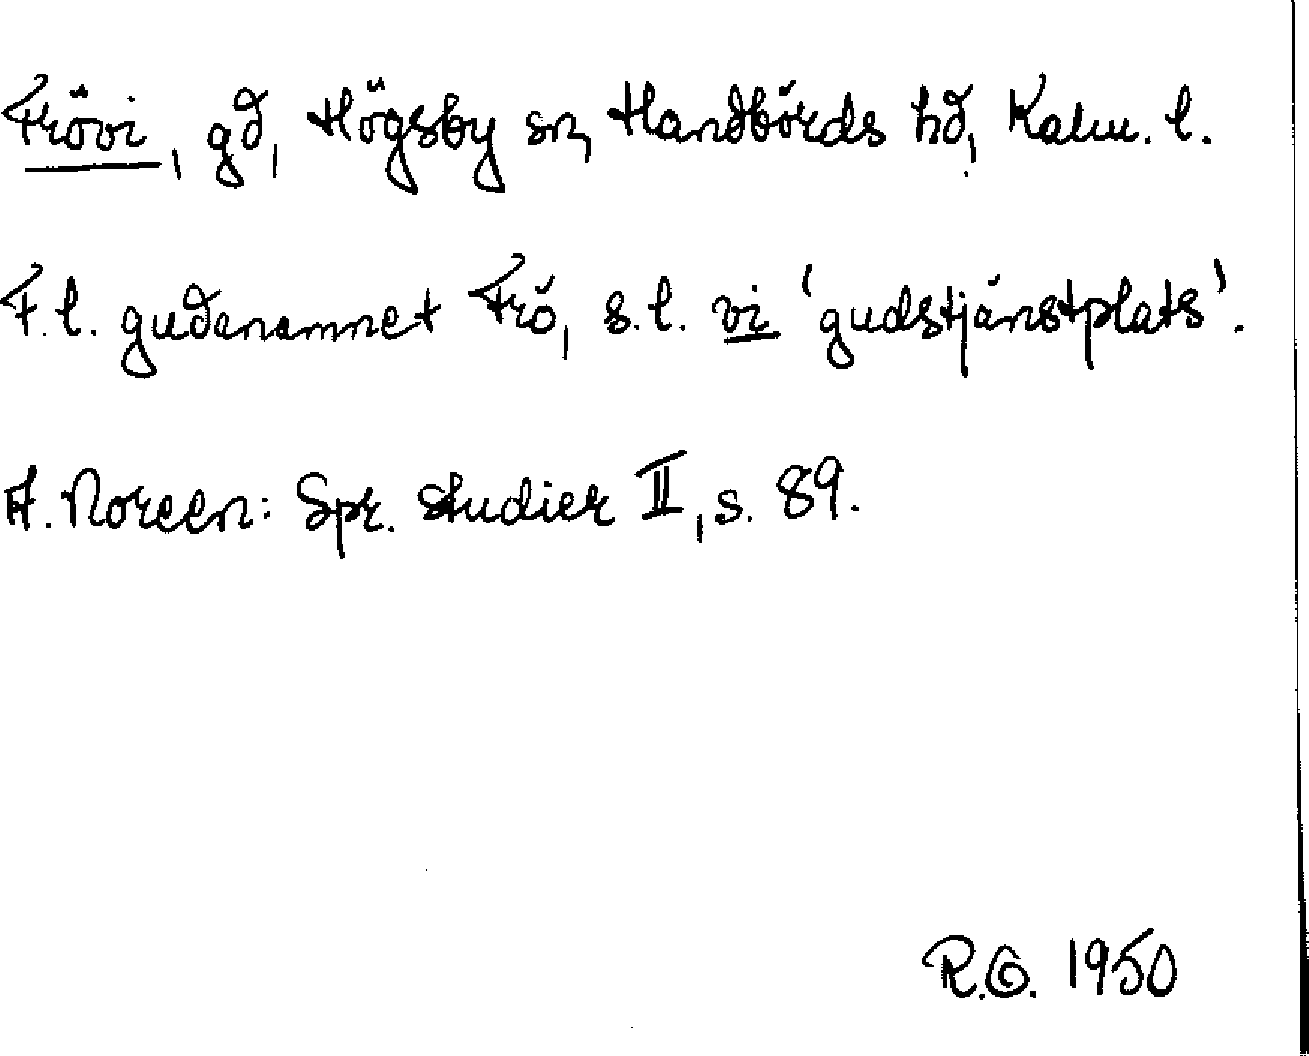 Frövi, gd, Högsby sn, Handbörds hd, Kalm. l.
F.l. gudanamnet Frö, s.l. vi 'gudstjänstplats'.
A. Noreen: Spr. studier II, s. 89.
R.G. 1950